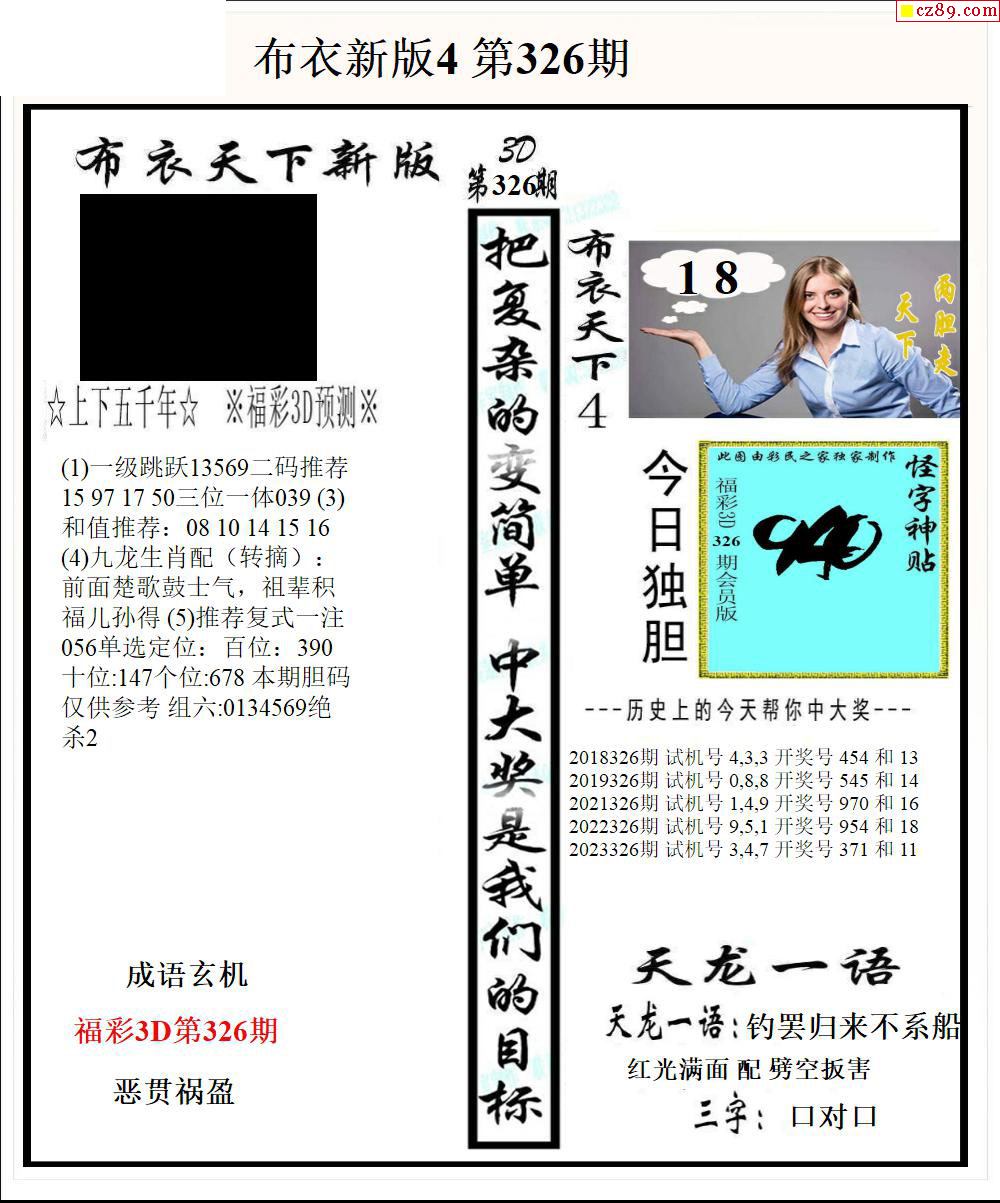 cz89.com
布衣新版4 第326期
布衣天下新版
☆上下五千年☆ ※福彩3D预测※
(1)一级跳跃13569二码推荐
15 97 17 50三位一体039 (3)
和值推荐：08 10 14 15 16
(4)九龙生肖配（转摘）：
前面楚歌鼓士气，祖辈积
福儿孙得 (5)推荐复式一注
056单选定位：百位：390
十位:147个位:678 本期胆码
仅供参考 组六:0134569绝
杀2
成语玄机
福彩3D第326期
恶贯祸盈
3D
第326期
把复杂的变简单 中大奖是我们的目标
布衣天下4
1 8
天下
两胆走
今日独胆
此图由彩民之家独家制作
福彩3D 326 期会员版
怪字神贴
---历史上的今天帮你中大奖---
2018326期 试机号 4,3,3 开奖号 454 和 13
2019326期 试机号 0,8,8 开奖号 545 和 14
2021326期 试机号 1,4,9 开奖号 970 和 16
2022326期 试机号 9,5,1 开奖号 954 和 18
2023326期 试机号 3,4,7 开奖号 371 和 11
天龙一语
天龙一语:钓罢归来不系船
红光满面 配 劈空扳害
三字： 口对口